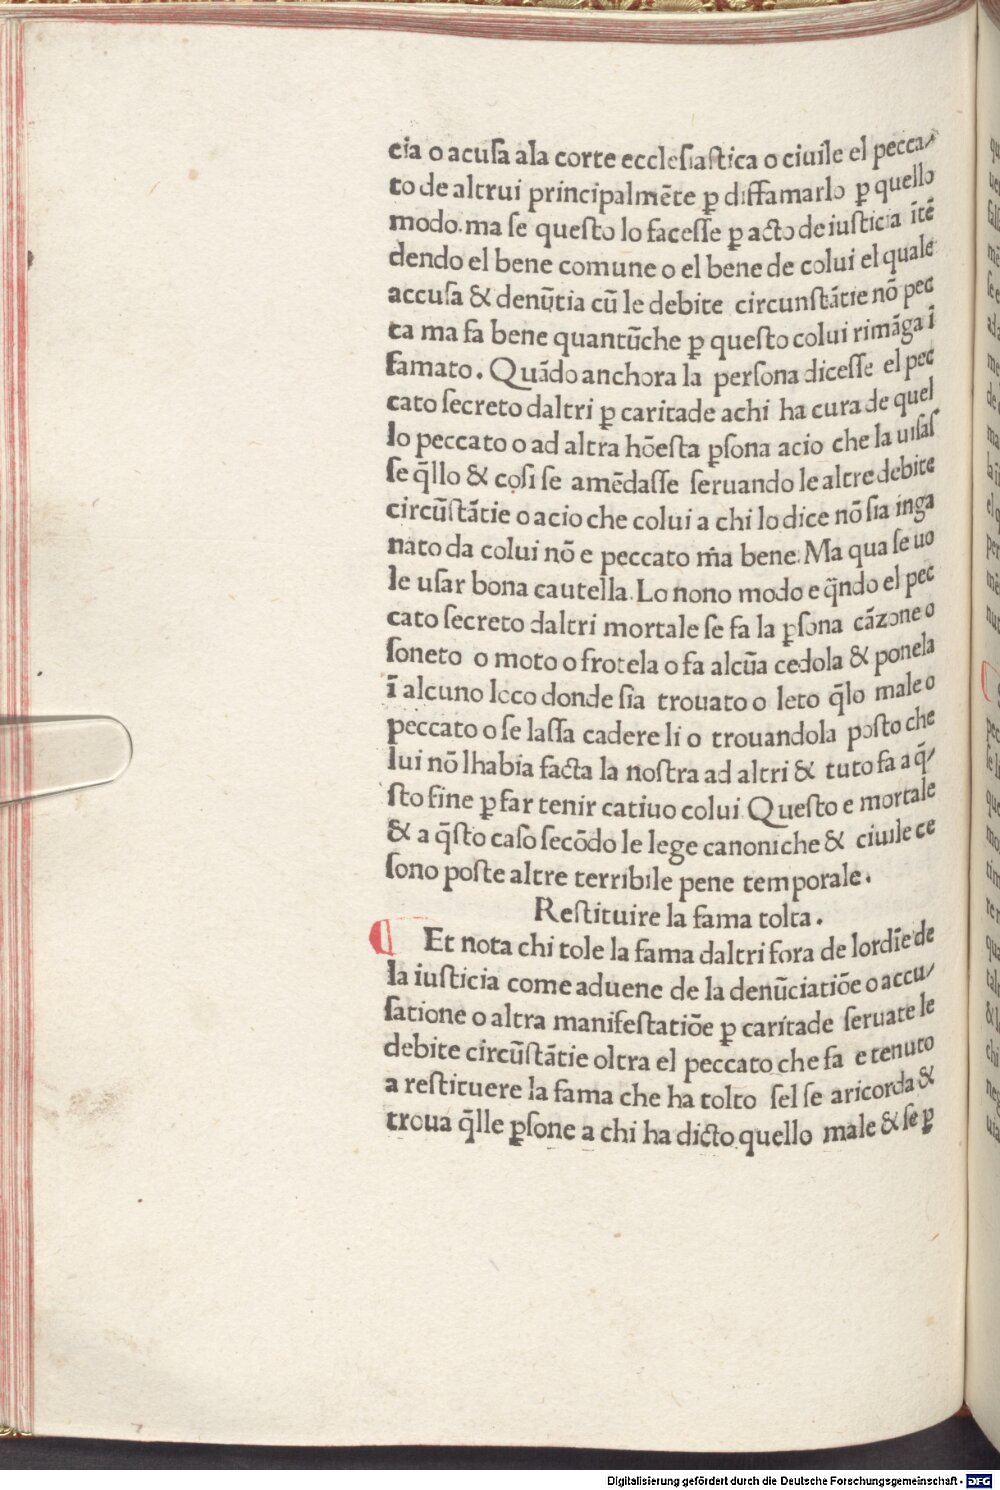 cia o acuſa ala corte eccleſiaſtica o ciuile el pecca⸗
to de altrui principalmēte ꝑ diffamarlo ꝑ quello
modo. ma ſe queſto lo faceſſe ꝑ acto de iuſticia ītē
dendo el bene comune o el bene de colui el quale
accuſa & denūtia cū le debite circunſtātie nō pec
ca ma fa bene quantūche ꝑ queſto colui rimāga ī
famato. Quādo anchora la perſona diceſſe el pec
cato ſecreto daltri ꝑ caritade achi ha cura de quel
lo peccato o ad altra hōeſta ꝑſona acio che la uiſaſ
ſe q̄llo & coſi ſe amēdaſſe ſeruando le altre debite
circūſtātie o acio che colui a chi lo dice nō ſia inga
nato da colui nō e peccato m̄a bene. Ma qua ſe uo
le uſar bona cautella. Lo nono modo e q̄ndo el pec
cato ſecreto daltri mortale ſe fa la ꝑſona cāzone o
ſoneto o moto o frotela o fa alcūa cedola & ponela
ī alcuno loco donde ſia trouato o leto q̄lo male o
peccato o ſe laſſa cadere li o trouandola poſto che
lui nō lhabia facta la noſtra ad altri & tuto fa a q̄⸗
ſto fine ꝑ far tenir catiuo colui Queſto e mortale
& a q̄ſto caſo ſecōdo le lege canoniche & ciuile ce
ſono poſte altre terribile pene temporale.
Reſtituire la fama tolta.
Et nota chi tole la fama daltri fora de lordīe de
la iuſticia come aduene de la denūciatiōe o accu⸗
ſatione o altra manifeſtatiōe ꝑ caritade ſeruate le
debite circūſtātie oltra el peccato che fa e tenuto
a reſtituere la fama che ha tolto ſel ſe aricorda &
troua q̄lle ꝑſone a chi ha dicto quello male & ſe ꝑ
Digitalisierung gefördert durch die Deutsche Forschungsgemeinschaft - DFG